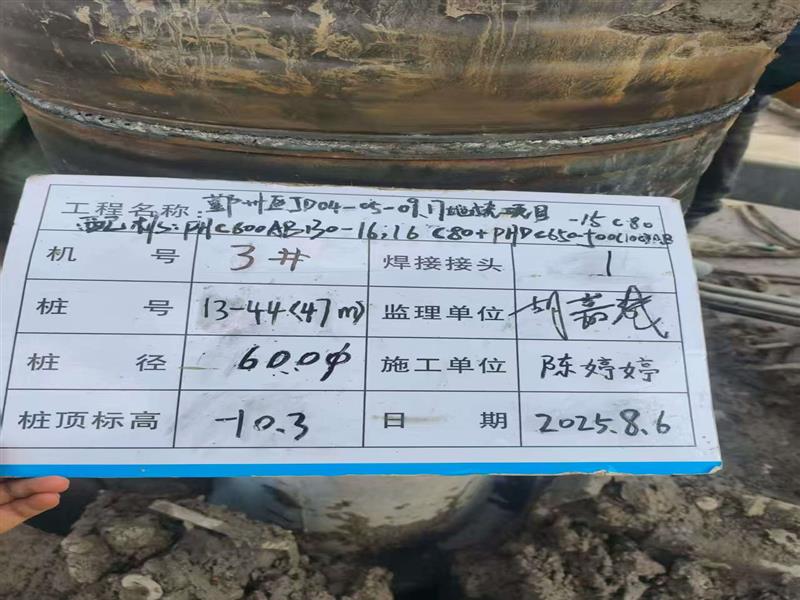 工程名称: 鄞州区JD04-05-09门地块项目
配桩: PHC600AB130-16;16 C80+PHDC650-500(100)AB -15 C80
机 号 3# 焊接接头 1
桩 号 13-44(47m) 监理单位
桩 径 600φ 施工单位 陈婷婷
桩顶标高 -10.3 日 期 2025.8.6